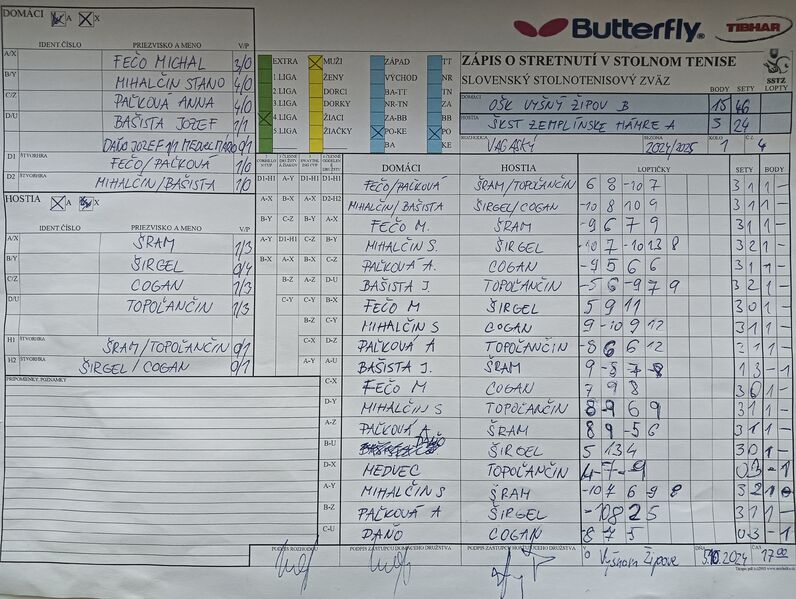 DOMÁCI A X
Butterfly
TIBHAR
IDENT.ČÍSLO PRIEZVISKO A MENO V/P
A/X FEČO MICHAL 3/0
B/Y MIHALČIN STANO 4/0
C/Z PAČKOVÁ ANNA 4/0
D/U BAŠISTA JOZEF 1/1
DAŇO JOZEF 1/1 MEDVEC 0/1
D1 ŠTVORHRA FEČO/PAČKOVÁ 1/0
D2 ŠTVORHRA MIHALČIN/BAŠISTA 1/0
HOSTIA A X
IDENT.ČÍSLO PRIEZVISKO A MENO V/P
A/X ŠRAM 1/3
B/Y ŠIRGEL 0/4
C/Z COGAN 1/3
D/U TOPOĽANČIN 1/3
H1 ŠTVORHRA ŠRAM/TOPOĽANČIN 0/1
H2 ŠTVORHRA ŠIRGEL/COGAN 0/1
PRIPOMIENKY, POZNÁMKY
EXTRA MUŽI ZÁPAD TT
1.LIGA ŽENY VÝCHOD NR
2.LIGA DORCI BA-TT TN
3.LIGA DORKY NR-TN ZA
4.LIGA ŽIACI ZA-BB BB
5.LIGA ŽIAČKY PO-KE PO
BA KE
ZÁPIS O STRETNUTÍ V STOLNOM TENISE
SLOVENSKÝ STOLNOTENISOVÝ ZVÄZ
SSTZ
BODY SETY LOPTY
DOMÁCI OŠK VYŠNÝ ŽIPOV B 15 46
HOSTIA ŠKST ZEMPLÍNSKE HÁMRE A 3 24
ROZHODCA VAGASKÝ SEZÓNA 2024/2025 KOLO 1 Č.Z. 4
DOMÁCI HOSTIA LOPTIČKY SETY BODY
D1-H1 A-Y D1-H1 D1-H1 FEČO/PAČKOVÁ ŠRAM/TOPOĽANČIN 6 8 -10 7 3 1 1 -
A-X B-X A-X D2-H2 MIHALČIN/BAŠISTA ŠIRGEL/COGAN -10 8 10 9 3 1 1 -
B-Y C-Z B-Y A-X FEČO M. ŠRAM -9 6 7 9 3 1 1 -
A-Y D1-H1 C-Z B-Y MIHALČIN S. ŠIRGEL -10 7 -10 13 8 3 2 1 -
B-X A-X A-Y C-Z PAČKOVÁ A. COGAN -9 5 6 6 3 1 1 -
B-Z A-Z D-U BAŠISTA J. TOPOĽANČIN -5 6 -9 7 9 3 2 1 -
C-Y C-Y B-X FEČO M ŠIRGEL 5 9 11 3 0 1 -
B-Z C-Y MIHALČIN S COGAN 9 -10 9 12 3 1 1 -
C-X D-Z PAČKOVÁ A TOPOĽANČIN -8 6 6 12 3 1 1 -
A-Y A-U BAŠISTA J. ŠRAM 9 -8 -7 -8 1 3 - 1
C-X FEČO M COGAN 7 9 8 3 0 1 -
D-Y MIHALČIN S TOPOĽANČIN 8 -9 6 9 3 1 1 -
A-Z PAČKOVÁ A ŠRAM 8 9 -5 6 3 1 1 -
B-U DAŇO ŠIRGEL 5 13 4 3 0 1 -
D-X MEDVEC TOPOĽANČIN -4 -7 -9 0 3 - 1
A-Y MIHALČIN S ŠRAM -10 7 6 9 8 3 2 1
B-Z PAČKOVÁ A ŠIRGEL -10 8 2 5 3 1 1 -
C-U DAŇO COGAN -8 7 5 0 3 - 1
PODPIS ROZHODCU PODPIS ZÁSTUPCU DOMÁCEHO DRUŽSTVA PODPIS ZÁSTUPCU HOSŤUJÚCEHO DRUŽSTVA V Vyšnom Žipove DŇA 2024 ČAS 17 00